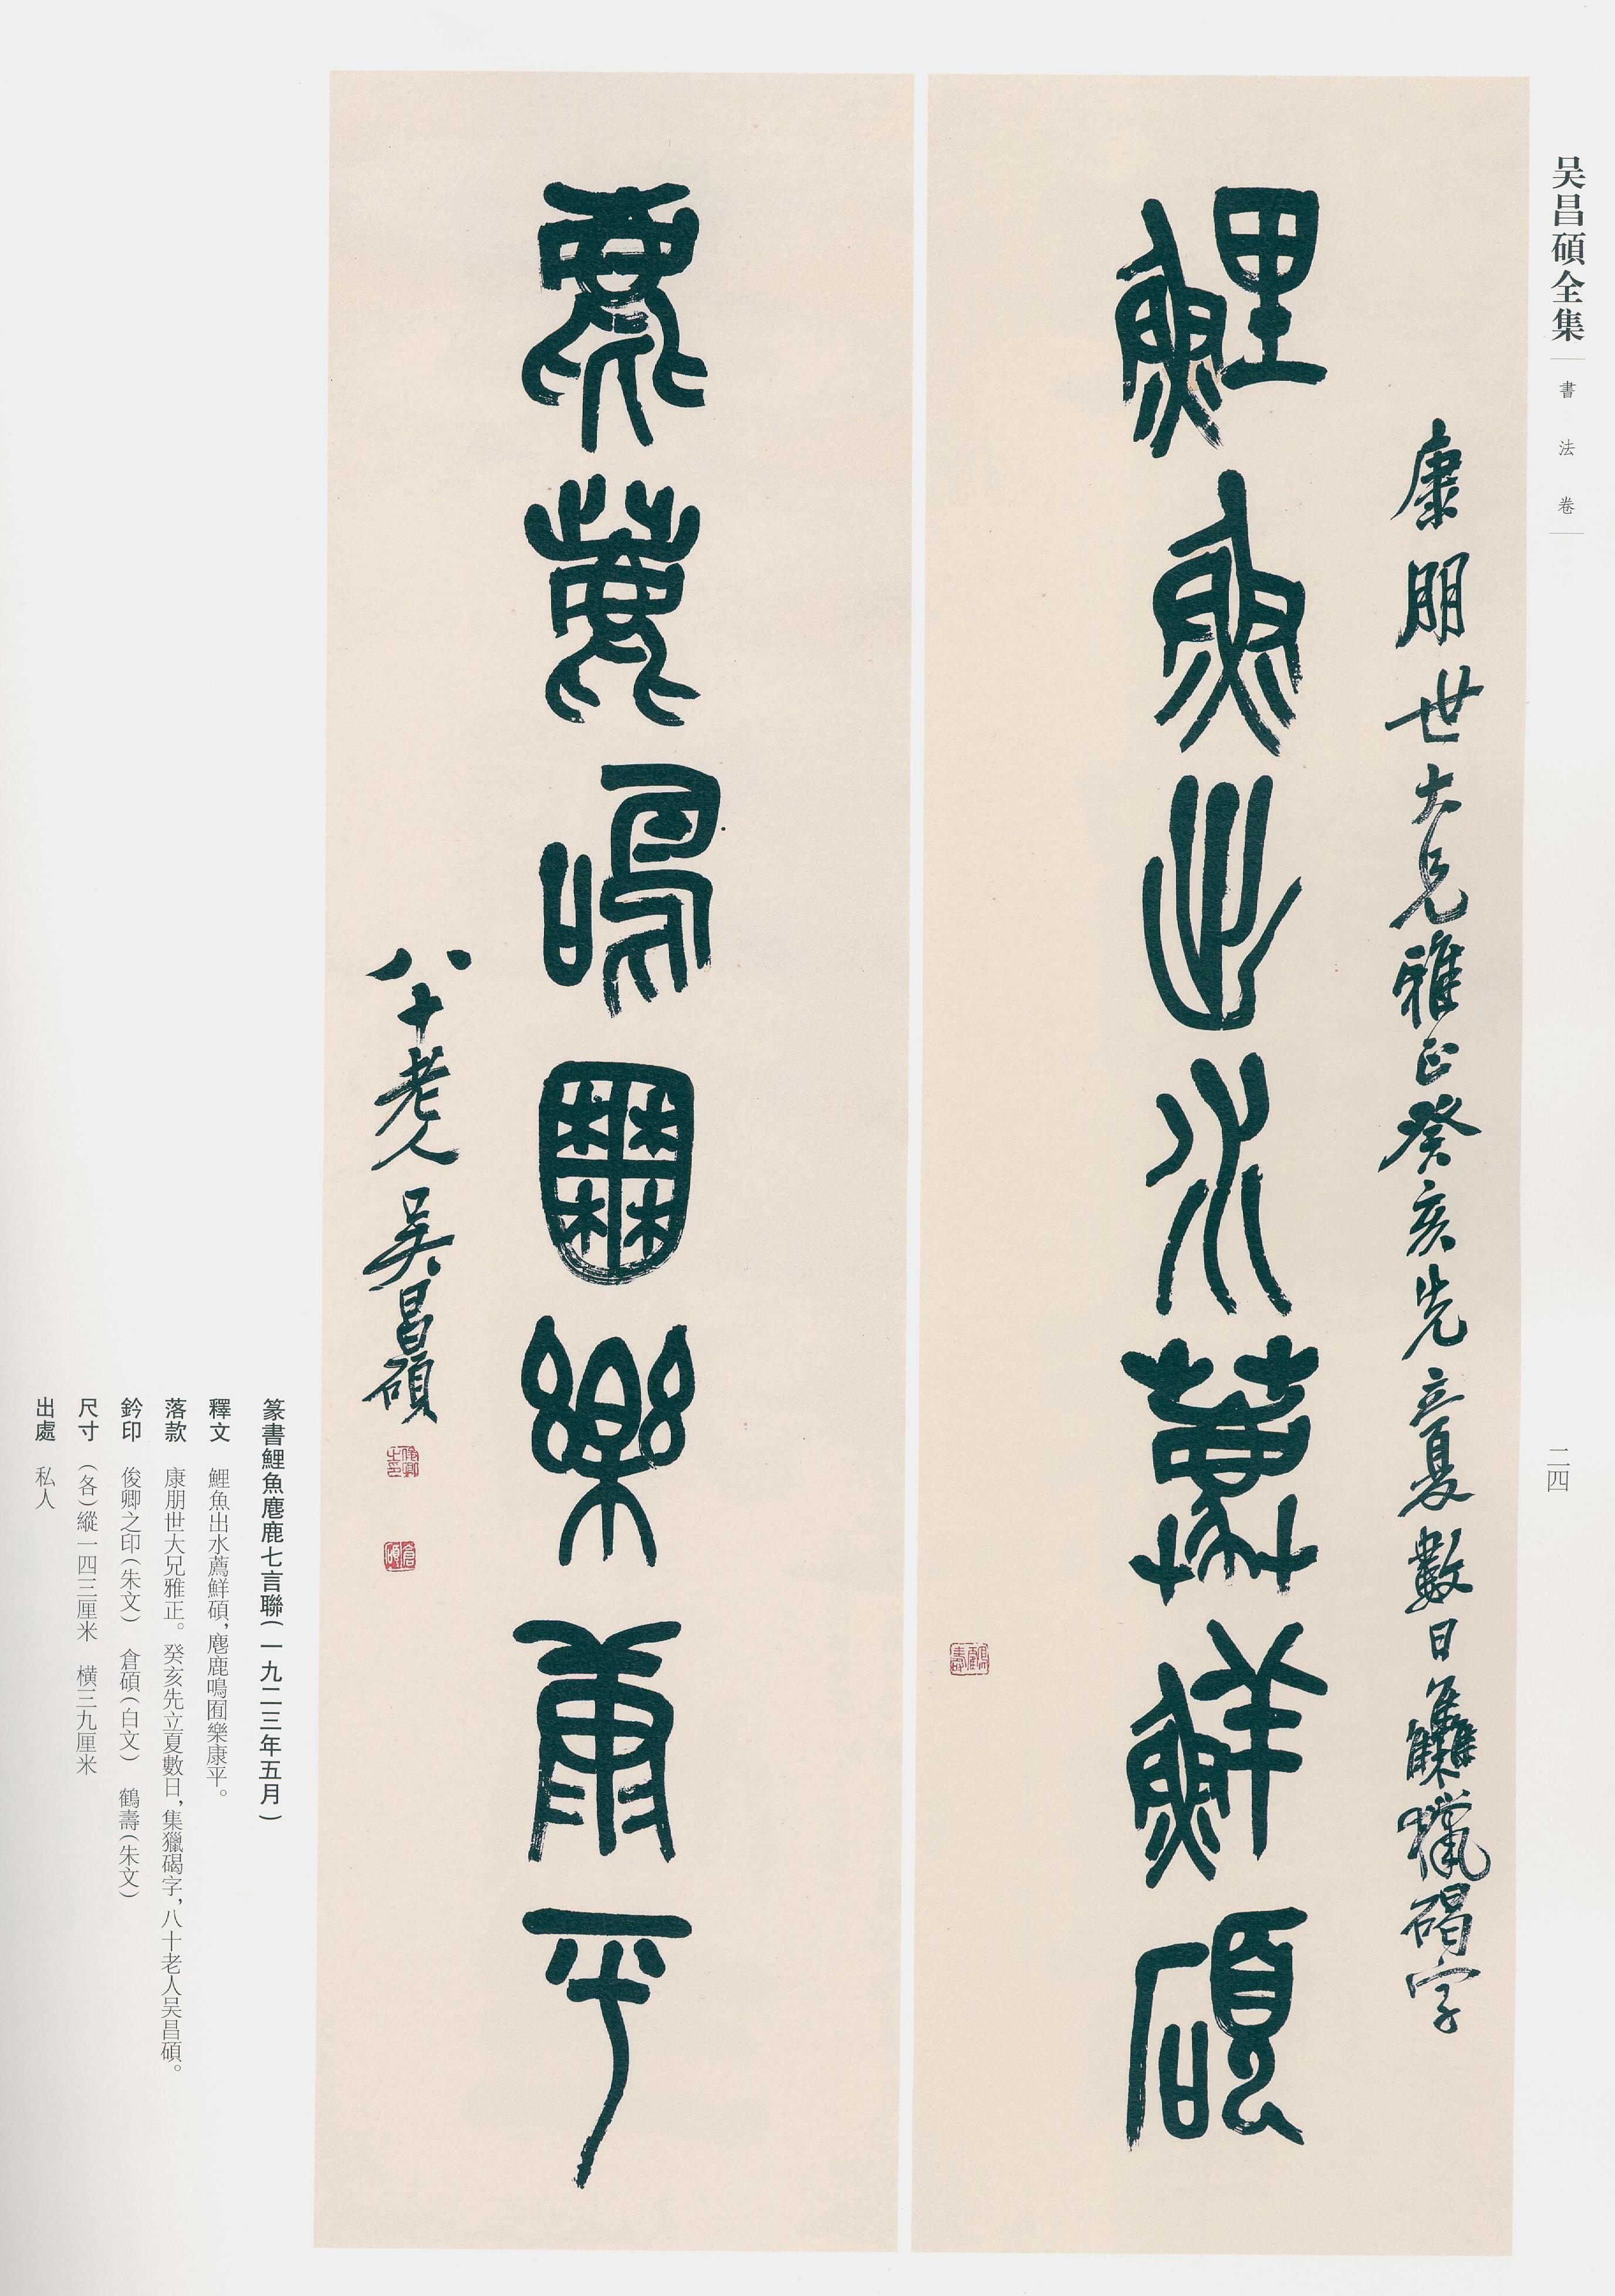 吴昌碩全集
書法卷
二四
康朋世大兄雅正癸亥先立夏數日集獵碣字
鯉魚出水薦鮮碩
麀鹿鳴囿樂康平
八十老人吴昌碩
俊卿之印
倉碩
鶴壽
篆書鯉魚麀鹿七言聯(一九二三年五月)
釋文　鯉魚出水薦鮮碩，麀鹿鳴囿樂康平。
落款　康朋世大兄雅正。癸亥先立夏數日，集獵碣字，八十老人吴昌碩。
鈐印　俊卿之印(朱文)　倉碩(白文)　鶴壽(朱文)
尺寸　(各)縱一四三厘米　橫三九厘米
出處　私人